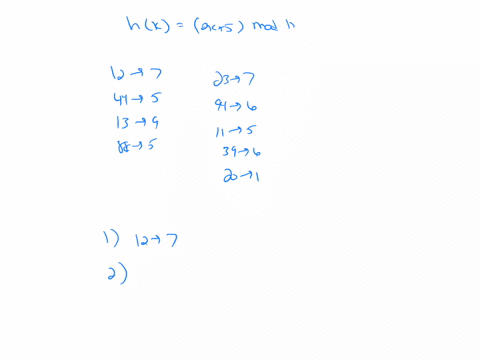 h(x) = (2x+5) mod 11
12→7
44→5
13→9
88→5
23→7
94→6
11→5
39→6
20→1
1) 12→7
2)